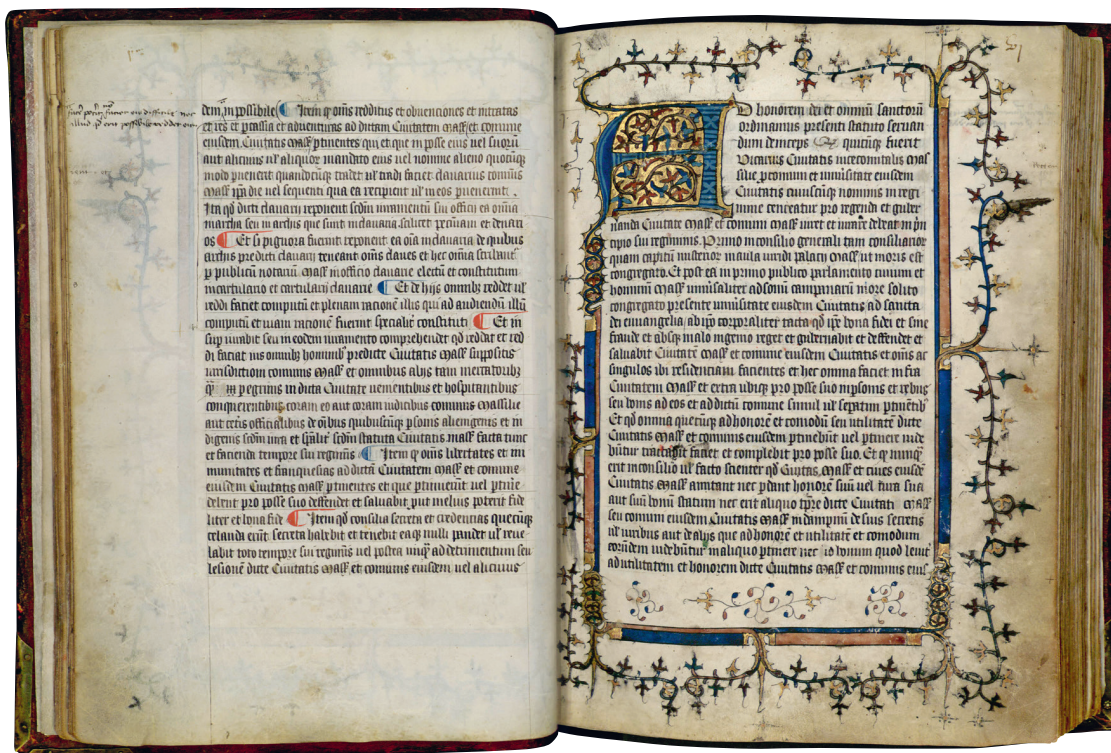 dem in possibile Item q omnis redditus et obuenciones et intratas
et res et passia et aduenturas ad dictam Ciuitatem mass et comune
eiusdem Ciuitatis mass ptinentes qui et que in posse eius uel suorum
aut alicuius ul aliquorum mandato eius uel nomine alieno quocumq
modo puenerint quandocumq tradet ul tradi faciet clauarijs comunis
mass ipa die uel sequenti qua ea recipient ul in eos peruenerint
Ita qd dicti clauarij reponent sedm iuramentu sui officij ea omia
in archa seu in archis que sunt in clauaria scilicet pecuniam et denari
os Et si pignora fuerint reponent ea oia in clauaria de quibus
archis prediti clauarij teneant omis claues et hec omia scribant
p publicu notariu mass in officio clauarie electu et constitutum
in cartulario et cartularij clauarie Et de hijs omnib reddet ul
reddi faciet computu et plenam racione illis qui ad audiendu illu
computu et illam racione fuerint specialit constituti Et in
sup iurabit seu in eodem iuramento comprehendet qd reddat et red
di faciat ius omnib hominib predicte Ciuitatis mass suppositis
iurisdictioni comunis mass et omnibus alijs tam mercatorib
q peregrinis in dicta Ciuitate uementibus et hospitantibus
conquerentibus coram eo aut coram iudicibus comunis massilie
aut ceteris officialibus de omibus quibuscumq psonis alienigenis et in
digenis sedm iura et spalit sedm statuta Ciuitatis mass facta tunc
et facienda tempore sui regiminis Item q omis libertates et im
munitates et franquesias ad dictam Ciuitatem mass et comune
eiusdem Ciuitatis mass ptinentes et que ptinuerint uel ptinere
debent pro posse suo deffendet et saluabit put melius poterit fide
liter et bona fide Item qd consilia secreta et credencias quecumq
celanda erunt secreta habebit et tenebit eaq nulli pandet ul reue
labit toto tempore sui regiminis uel postea unq ad detrimentum seu
lesione dicte Ciuitatis mass et comunis eiusdem uel alicuius
AD honorem dei et omnium sanctorum
ordinamus presenti statuto seruan
dum deinceps q quicumq fuerit
Vicarius Ciuitatis uicecomitalis mas
silie pro comuni et uniuersitate eiusdem
Ciuitatis cuiuscumq nominis in regi
mine teneatur pro regenda et guber
nanda Ciuitate mass et comuni mass iuret et iurare debeat in prin
cipio sui regiminis Primo in consilio generali tam consiliarior
quam capitum misterior in aula uiridi palacij mass ut moris est
congregato Et post ea in primo publico parlamento ciuium et
hominum mass uniuersaliter ad sonum campanarum more solito
congregato presente uniuersitate eiusdem Ciuitatis ad sancta
dei euuangelia ab ipo corporaliter tacta qd ipe bona fide et sine
fraude et absq malo ingenio reget et gubernabit et deffendet et
saluabit Ciuitate mass et comune eiusdem Ciuitatis et omis ac
singulos ibi residenciam facientes et her omnia faciet infra
Ciuitatem mass et extra ubiq pro posse suo in psonis et rebus
seu bonis ad eos et ad dictu comune simul ul separatim ptinentib
Et qd omnia quecumq ad honore et comodu seu utilitate dicte
Ciuitatis mass et comunis eiusdem ptinebunt uel ptinere uide
buntur tractabit faciet et complebit pro posse suo. Et q nunq
erit in consilio ul facto scienter qd Ciuitas mass et ciues eiusde
Ciuitatis mass amittant nec perdant honore suu uel iura sua
aut suu bonu statum nec erit aliquo tempore dicte Ciuitati mass
seu comuni eiusdem Ciuitatis mass in dampnu de suis secretis
ul iuribus aut de alijs que ad honore et utilitate et comodum
eorumdem uidebuntur in aliquo ptinere nec id bonum quod leuit
ad utilitatem et honorem dicte Ciuitatis mass et comunis eius